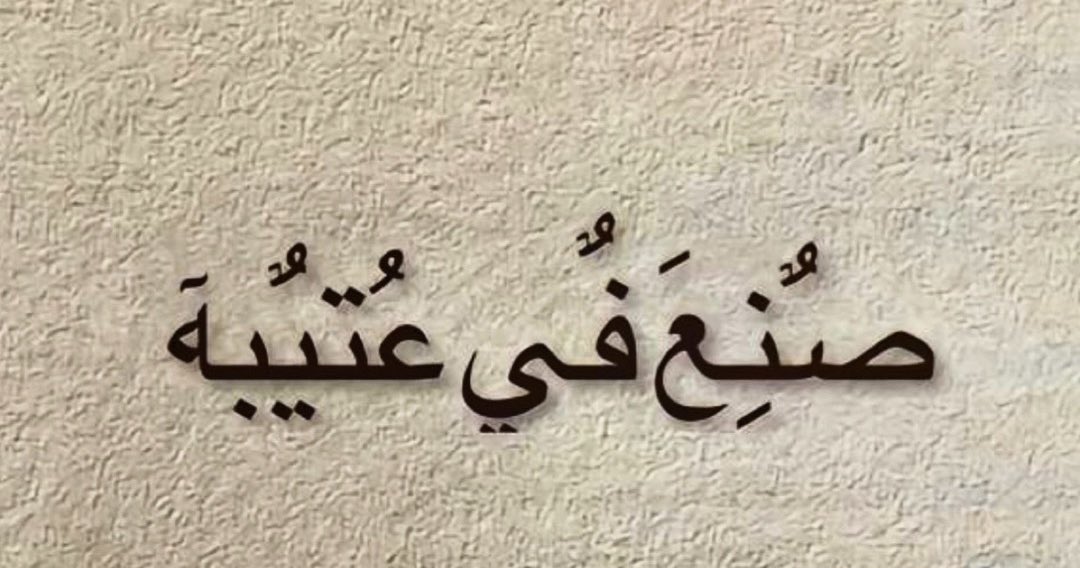 صنُِعَ فُي عُتيُبهَ